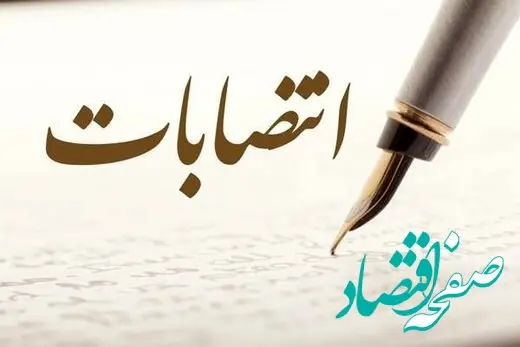 انتصابات
صفحه اقتصاد